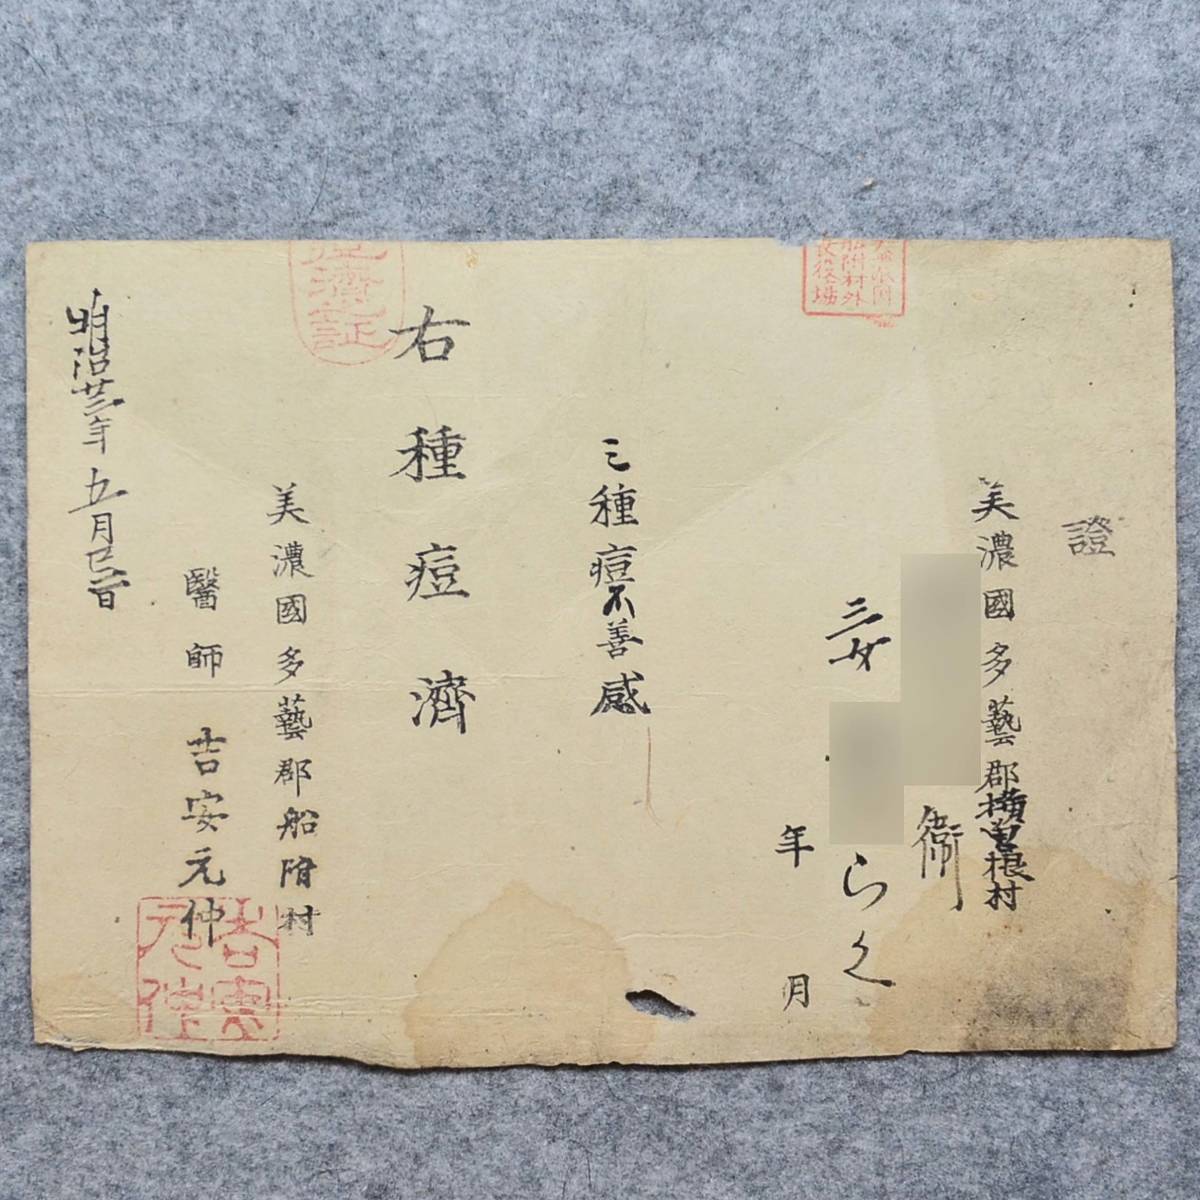 證
美濃國多藝郡横曽根村
衛
三女
らく
年 月
三種痘不善感
右種痘濟
美濃國多藝郡船附村
醫師 吉安元仲
明治廿三年五月
船附村外
役場
濟証
吉安
元仲